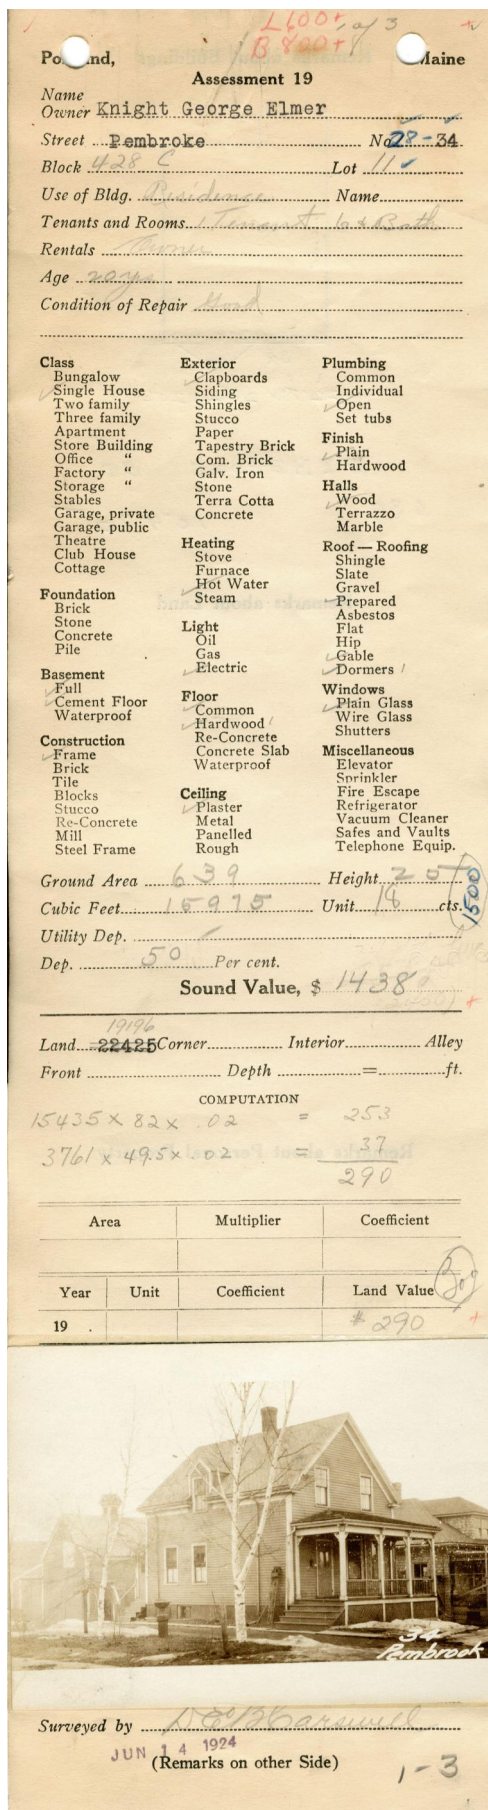 L 600+ 1 of 3 +
B 800+
Po land, Maine
Assessment 19
Name
Owner Knight George Elmer
Street Pembroke No. 28-34
Block 428 C Lot 11
Use of Bldg. Residence Name
Tenants and Rooms 1 Tenant 6 & Bath
Rentals Owner
Age 20 yrs
Condition of Repair Good
Class
Bungalow
Single House
Two family
Three family
Apartment
Store Building
Office "
Factory "
Storage "
Stables
Garage, private
Garage, public
Theatre
Club House
Cottage
Foundation
Brick
Stone
Concrete
Pile
Basement
Full
Cement Floor
Waterproof
Construction
Frame
Brick
Tile
Blocks
Stucco
Re-Concrete
Mill
Steel Frame
Exterior
Clapboards
Siding
Shingles
Stucco
Paper
Tapestry Brick
Com. Brick
Galv. Iron
Stone
Terra Cotta
Concrete
Heating
Stove
Furnace
Hot Water
Steam
Light
Oil
Gas
Electric
Floor
Common
Hardwood 1
Re-Concrete
Concrete Slab
Waterproof
Ceiling
Plaster
Metal
Panelled
Rough
Plumbing
Common
Individual
Open
Set tubs
Finish
Plain
Hardwood
Halls
Wood
Terrazzo
Marble
Roof — Roofing
Shingle
Slate
Gravel
Prepared
Asbestos
Flat
Hip
Gable
Dormers 1
Windows
Plain Glass
Wire Glass
Shutters
Miscellaneous
Elevator
Sprinkler
Fire Escape
Refrigerator
Vacuum Cleaner
Safes and Vaults
Telephone Equip.
Ground Area 639 Height 25
Cubic Feet 15975 Unit 18 cts.
1500
Utility Dep.
Dep. 50 Per cent.
Sound Value, $ 1438
19196
Land 22425 Corner Interior Alley
Front Depth = ft.
COMPUTATION
15435 x 82 x .02 = 253
3761 x 49.5 x .02 = 37
290
Area Multiplier Coefficient
Year Unit Coefficient Land Value
19 . $ 290 +
34
Pembrook
Surveyed by
JUN 14 1924
(Remarks on other Side)
1-3